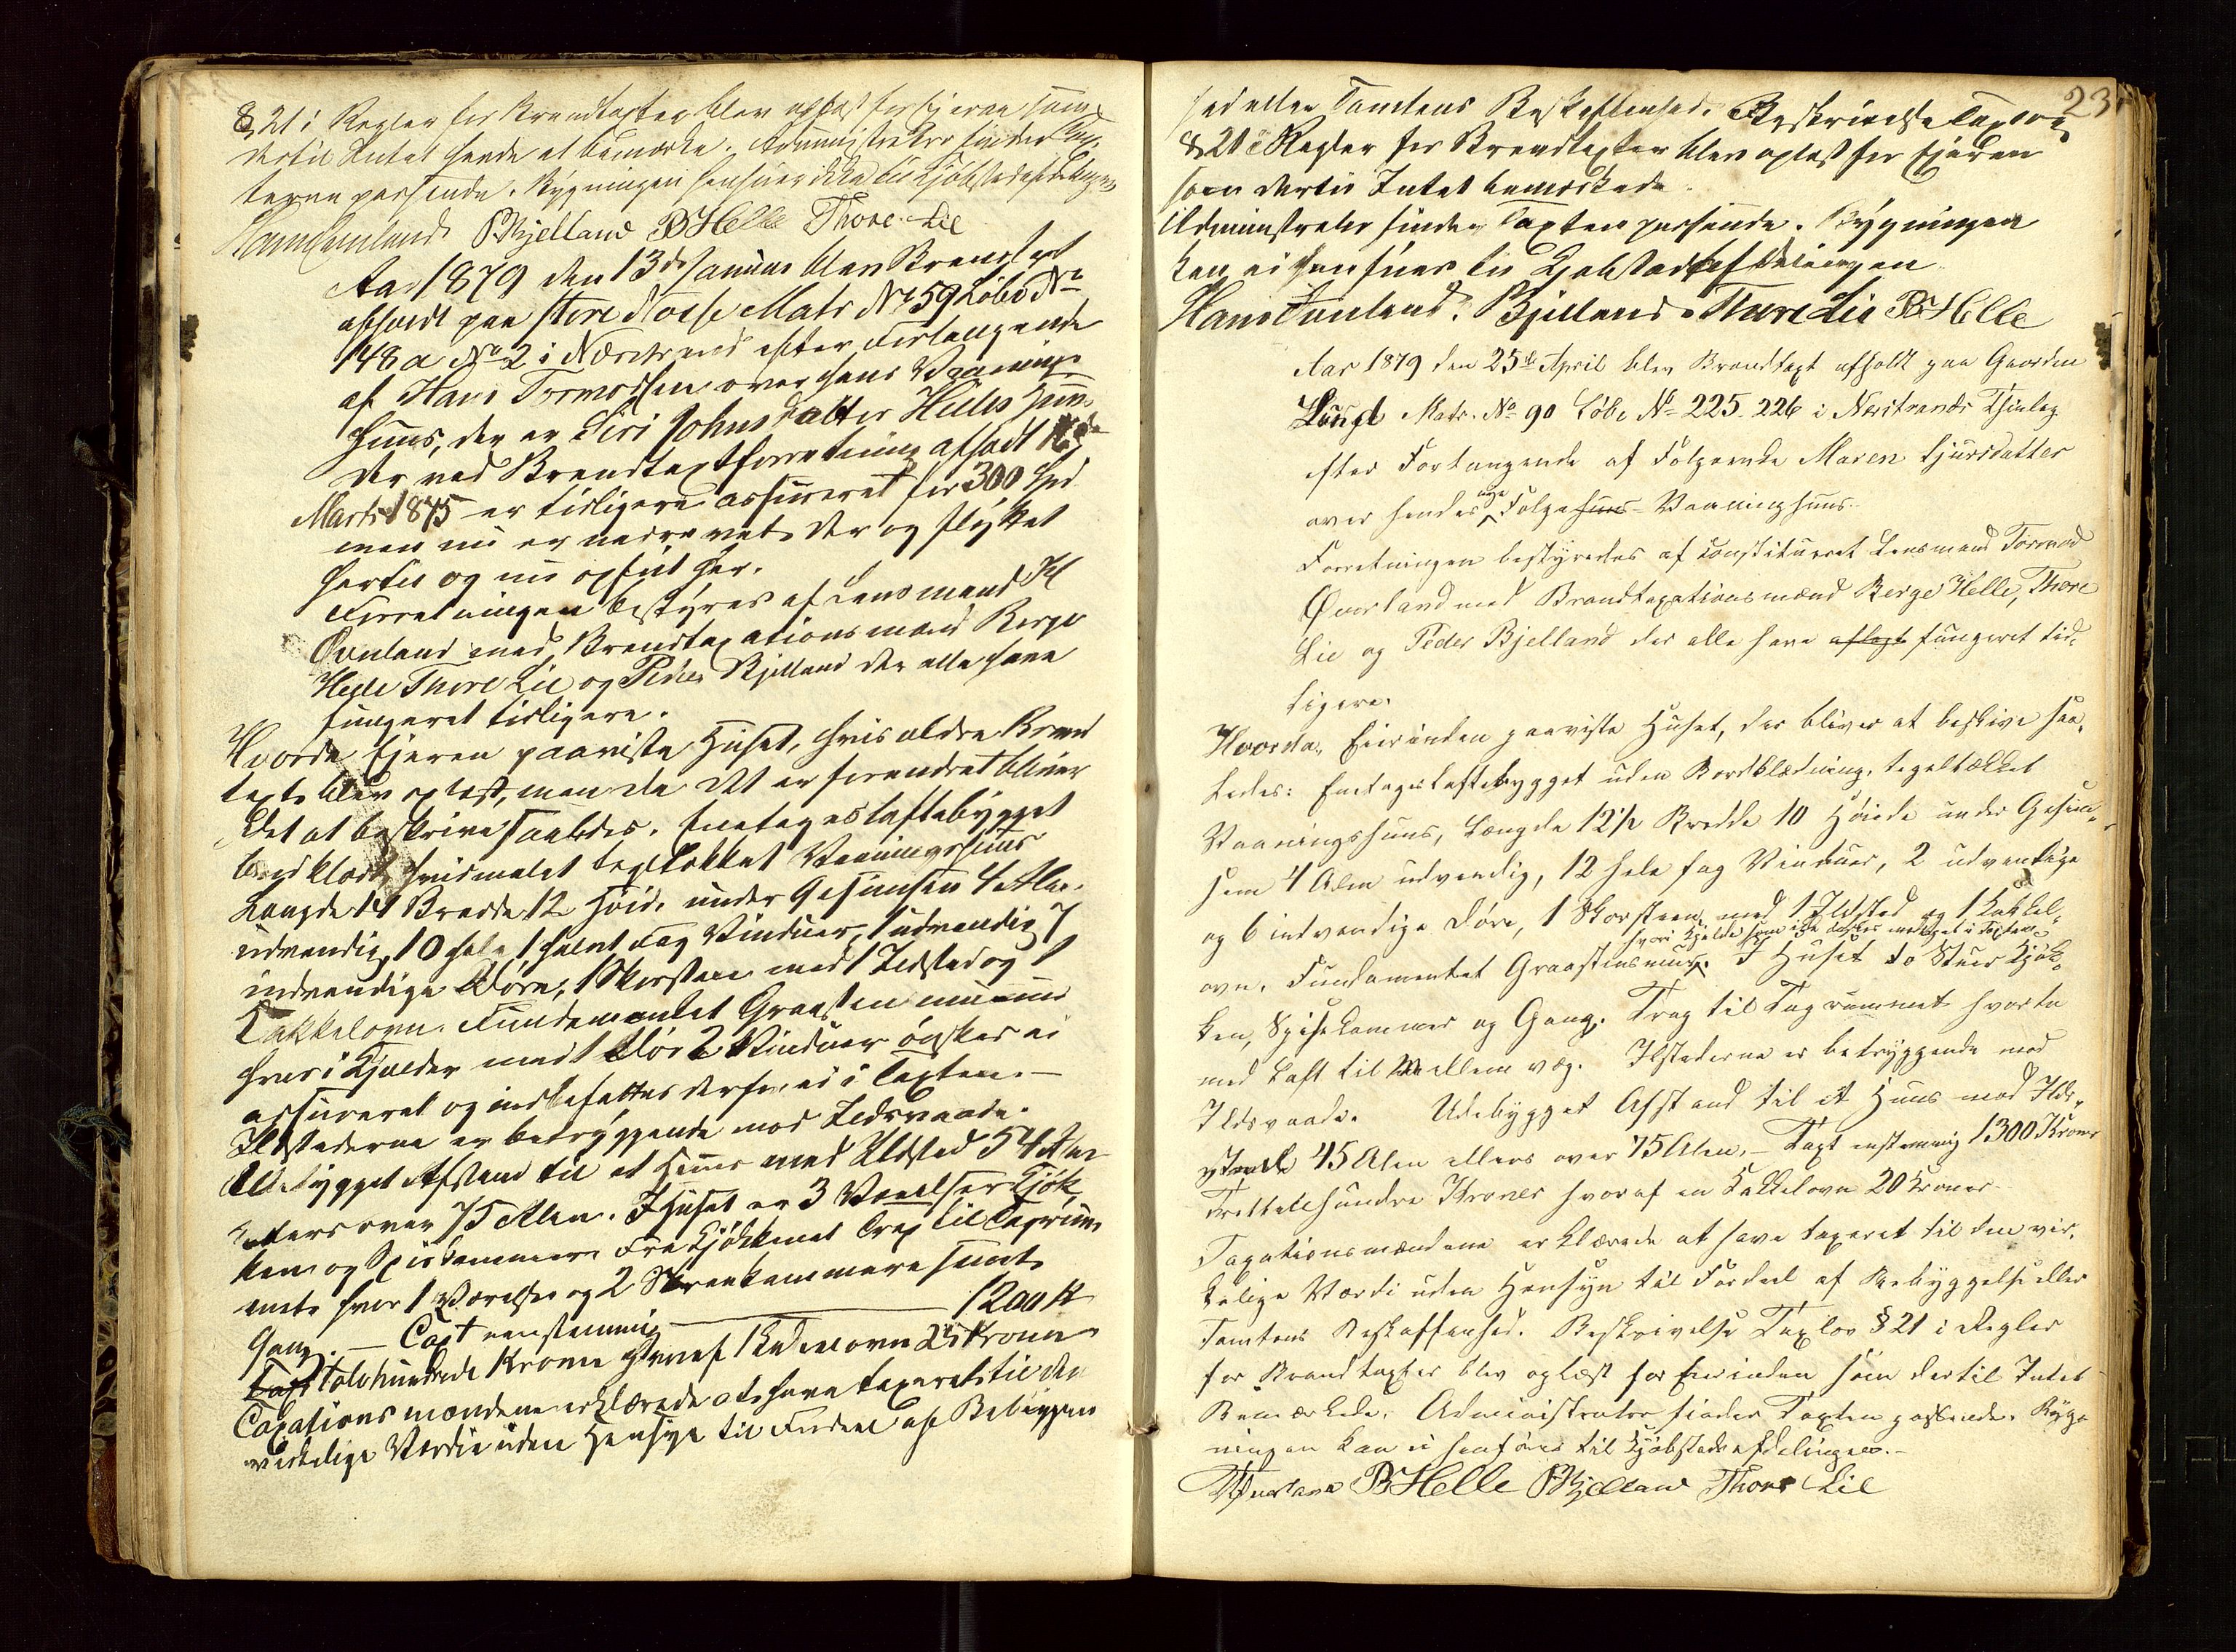 § 21 i Regler for Brandtaxter blev oplæst for Ejeren som
dertil Intet havde at bemærke. Administrator finder Tax¬
terne passende. Bygningen henføres ikke til Kjøbstadafdelingen
Hans Qvuland PBjelland BHelle Thore Lie
Aar 1879 den 13de Januar blev Brandtaxt
afholdt paa store Matr No 59 Løbe No
148a No 2 i Nærstrand efter Forlangende
af Hans Tormodsen over hans Vaanings¬
huus, der er Siri Johnsdatter Helles Huus
der ved Brandtaxtforretning afholdt
Marts 1875 er tidligere assureret for 300 Spd
men nu er nedrevet der og flyttet
hertil og nu opført her.
Forretningen bestyres af Lensmand H
Øvuland med Brandtaxationsmænd Berge
Helle Thore Lie og Peder Bjelland der alle have
fungeret tidligere.
Hvorda Ejeren paaviste Huset, hvis ældre Brand
taxt blev oplæst, men da det er forandret bliver
det at beskrive saaledes. Enetages laftebygget
bordklædt hvidmalet teglækket Vaaningshuus
Længde 14 Bredde 12 Høide under Gesimsen 4 Alen
udvendig, 10 hele 1 halvt Fag Vinduer, 1 udvendig 7
indvendige Døre, 1 Skorsten med 1 Ildsted og 1
Kakkelovn. Fundamentet Graasten muur
hvori Kjælder med 1 Dør 2 Vinduer ønskes ei
assureret og indbefattes derfor ei i Taxten. —
Ildstederne er betryggende mod Ildsvaade.
Udebygget Afstand til et Huus med Ildsted 54 Alen
ellers over 75 Alen. I Huset er 3 Værelser Kjøk¬
ken og Spiskammer. Fra Kjøkkenet Trap til Tagrum¬
met hvor 1 Værelse og 2 Kammere samt
Gang. — Taxt eenstemmig — 1200 Kr
Taxt Tolvhundrede Kroner hvoraf 1 Kakkelovn 25 Kroner
Taxationsmændene erklærede at have taxeret til den
virkelige Værdie uden Hensyn til Fordeel af Bebyggen
23
hed eller Tomtens Beskaffenhed. Beskrivelse Taxlov
§ 21 i Regler for Brandtaxter blev oplæst for Ejeren
som dertil Intet bemærkede.
Administrator finder Taxten passende. Bygningen
kan ei henføres til Kjøbstadafdelingen.
Hans Qvuland. PBjelland Thore Lie BHelle
Aar 1879 den 25de April blev Brandtaxt afholdt paa Gaarden
Matr. No 90 Løbe No 225. 226 i Nerstrands Thinlag
efter Forlangende af Følgeenke Maren Sjursdatter
over hendes Følgehuus Vaaninghuus.
Forretningen bestyredes af constitueret Lensmand Tormod
Øvuland med Brandtaxationsmænd Berge Helle, Thore
Lie og Peder Bjelland der alle have aflagt fungeret tid¬
ligere.
Hvorda Eierinden paaviste Huset, der bliver at beskrive saa¬
ledes: Enetages laftebygget uden Bordklædning, tegeltækket
Vaaningshuus, Længde 12 1/2 Bredde 10 Høide under Gesim¬
sen 4 Alen udvendig, 12 hele fag Vinduer, 2 udvendige
og 6 indvendige Døre, 1 Skorsteen med 1 Ildsted og 1 Kakkel¬
hvori Kjelder som ikke ønskes medtaget i Taxten
ovn. Fundamentet Graasteensmuur. I Huset to Stuer Kjøk¬
ken, Spisekammer og Gang. Trap til Tagrummet hvorta
med Loft til Mellemvæg. Ildstederne er betryggende mod
Ildsvaade. Udebygget Afstand til et Huus med Ild¬
sted 45 Alen ellers over 75 Alen. — Taxt enstemmig 1300 Kroner
Trettenhundre Kroner hvoraf en Kakkelovn 20 Kroner
Taxationsmændene erklærede at have taxeret til den vir¬
kelige Værdi uden Hensyn til Fordeel af Bebyggelse eller
Tomtens Beskaffenhed. Beskrivelse Taxlov § 21 i Regler
for Brandtaxter blev oplæst for Eierinden som dertil Intet
Bemærkede. Administrator finder Taxten passende. Byg¬
ningen kan ei henføres til Kjøbstadsafdelingen. —
BHelle PBjelland Thore Lie